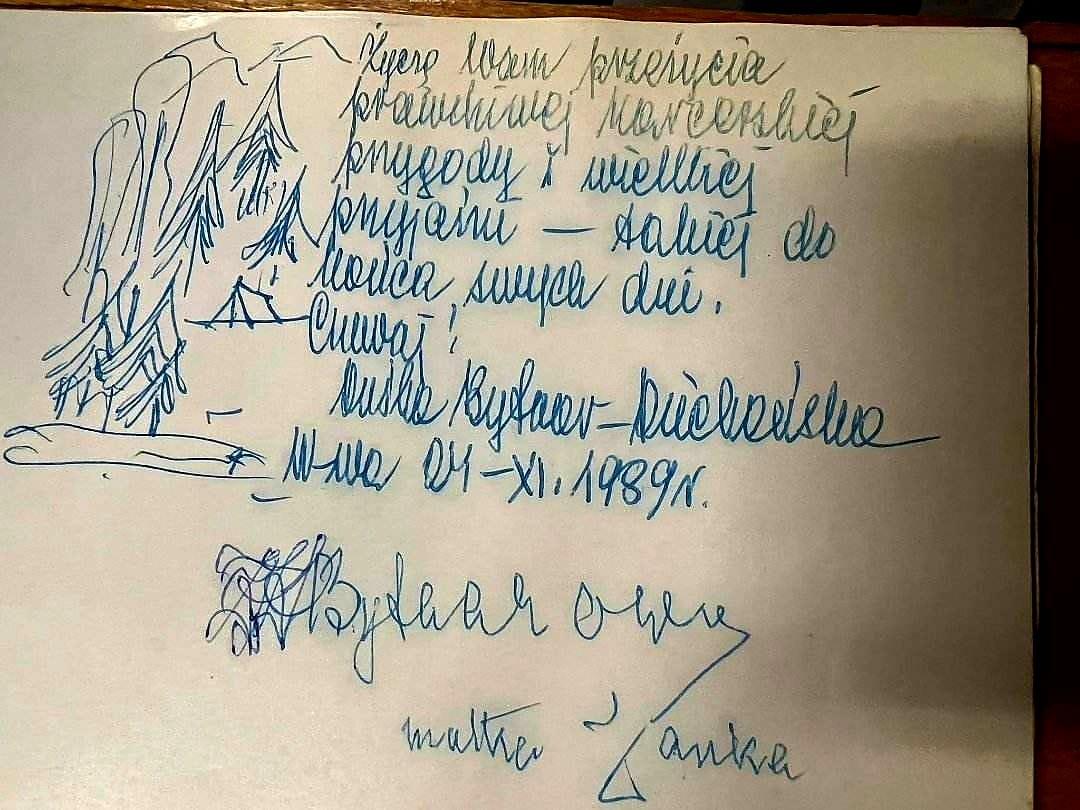 Życzę Wam przeżycia
prawdziwej harcerskiej
przygody i wielkiej
przyjaźni — takiej do
końca swych dni.
Czuwaj!
Duśka Bytnar-Dziekańska
W-wa 24-XI. 1989 r.
Bytnar
matka Janka